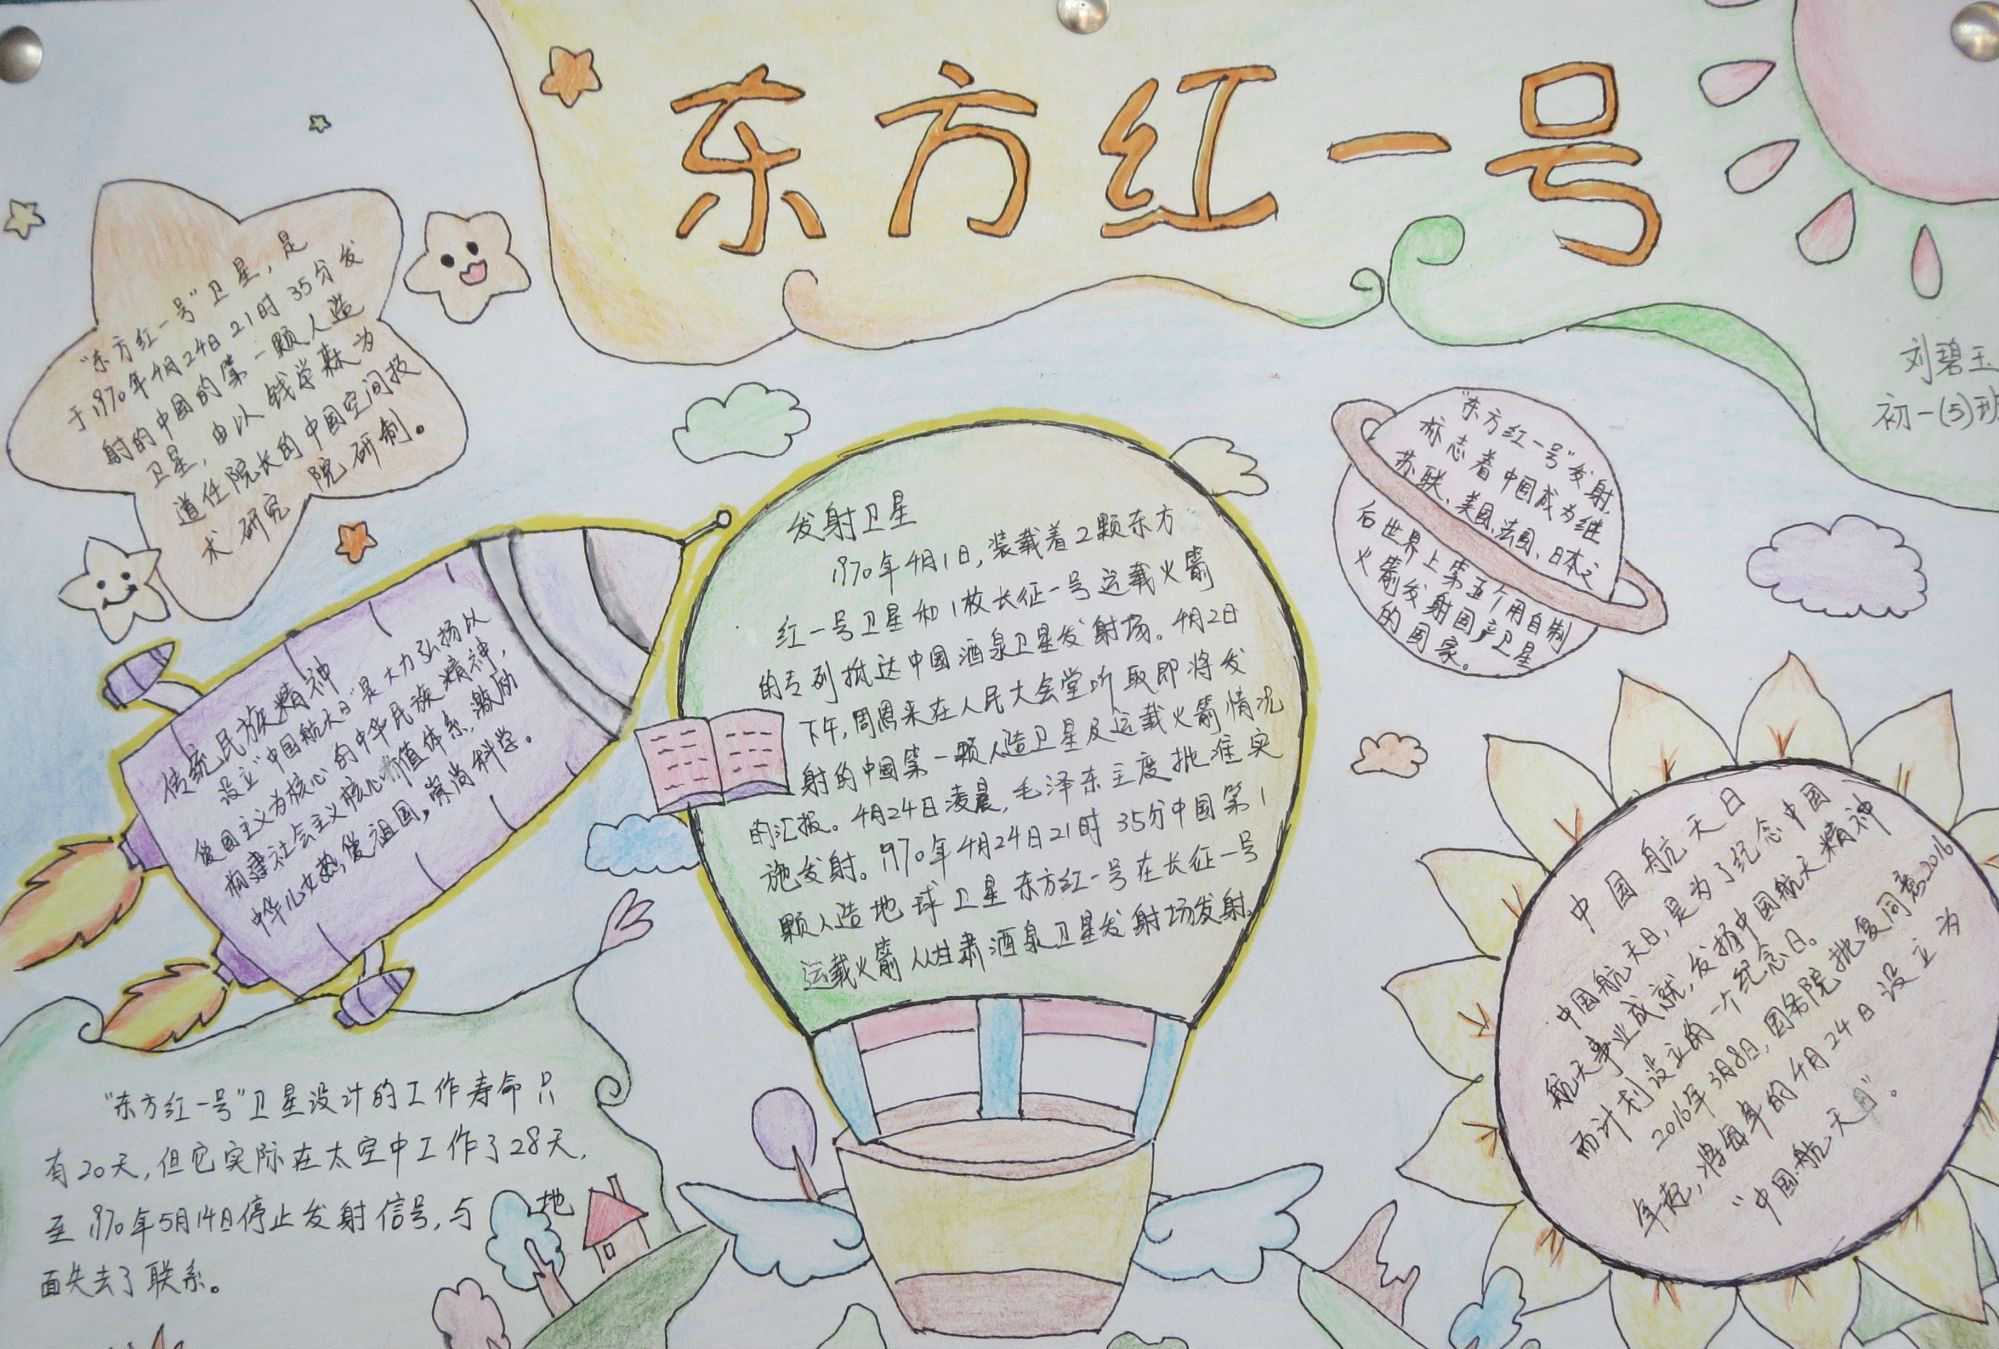 东方红一号
刘碧玉
初一(5)班
"东方红一号"卫星，是
于1970年4月24日21时35分发
射的中国的第一颗人造
卫星，由以钱学森为
道任院长的中国空间技
术研究院研制。
传统民族精神
设立"中国航天日"是大力弘扬以
爱国主义为核心的中华民族精神，
构建社会主义核心价值体系，激励
中华儿女热爱祖国，崇尚科学。
发射卫星
1970年4月1日，装载着2颗东方
红一号卫星和1枚长征一号运载火箭
的专列抵达中国酒泉卫星发射场。4月2日
下午，周恩来在人民大会堂听取即将发
射的中国第一颗人造卫星及运载火箭情况
的汇报。4月24日凌晨，毛泽东主度批准实
施发射。1970年4月24日21时35分中国第1
颗人造地球卫星东方红一号在长征一号
运载火箭从甘肃酒泉卫星发射场发射。
"东方红一号"发射，
标志着中国成为继
苏联、美国、法国、日本之
后世界上第五个用自制
火箭发射国产卫星
的国家。
中国航天日
中国航天日，是为了纪念中国
航天事业成就，发扬中国航天精神
而计划设立的一个纪念日。
2016年3月8日，国务院批复同意2016
年起，将每年的4月24日设立为
"中国航天日"。
"东方红一号"卫星设计的工作寿命只
有20天，但它实际在太空中工作了28天，
至1970年5月14日停止发射信号，与地
面失去了联系。